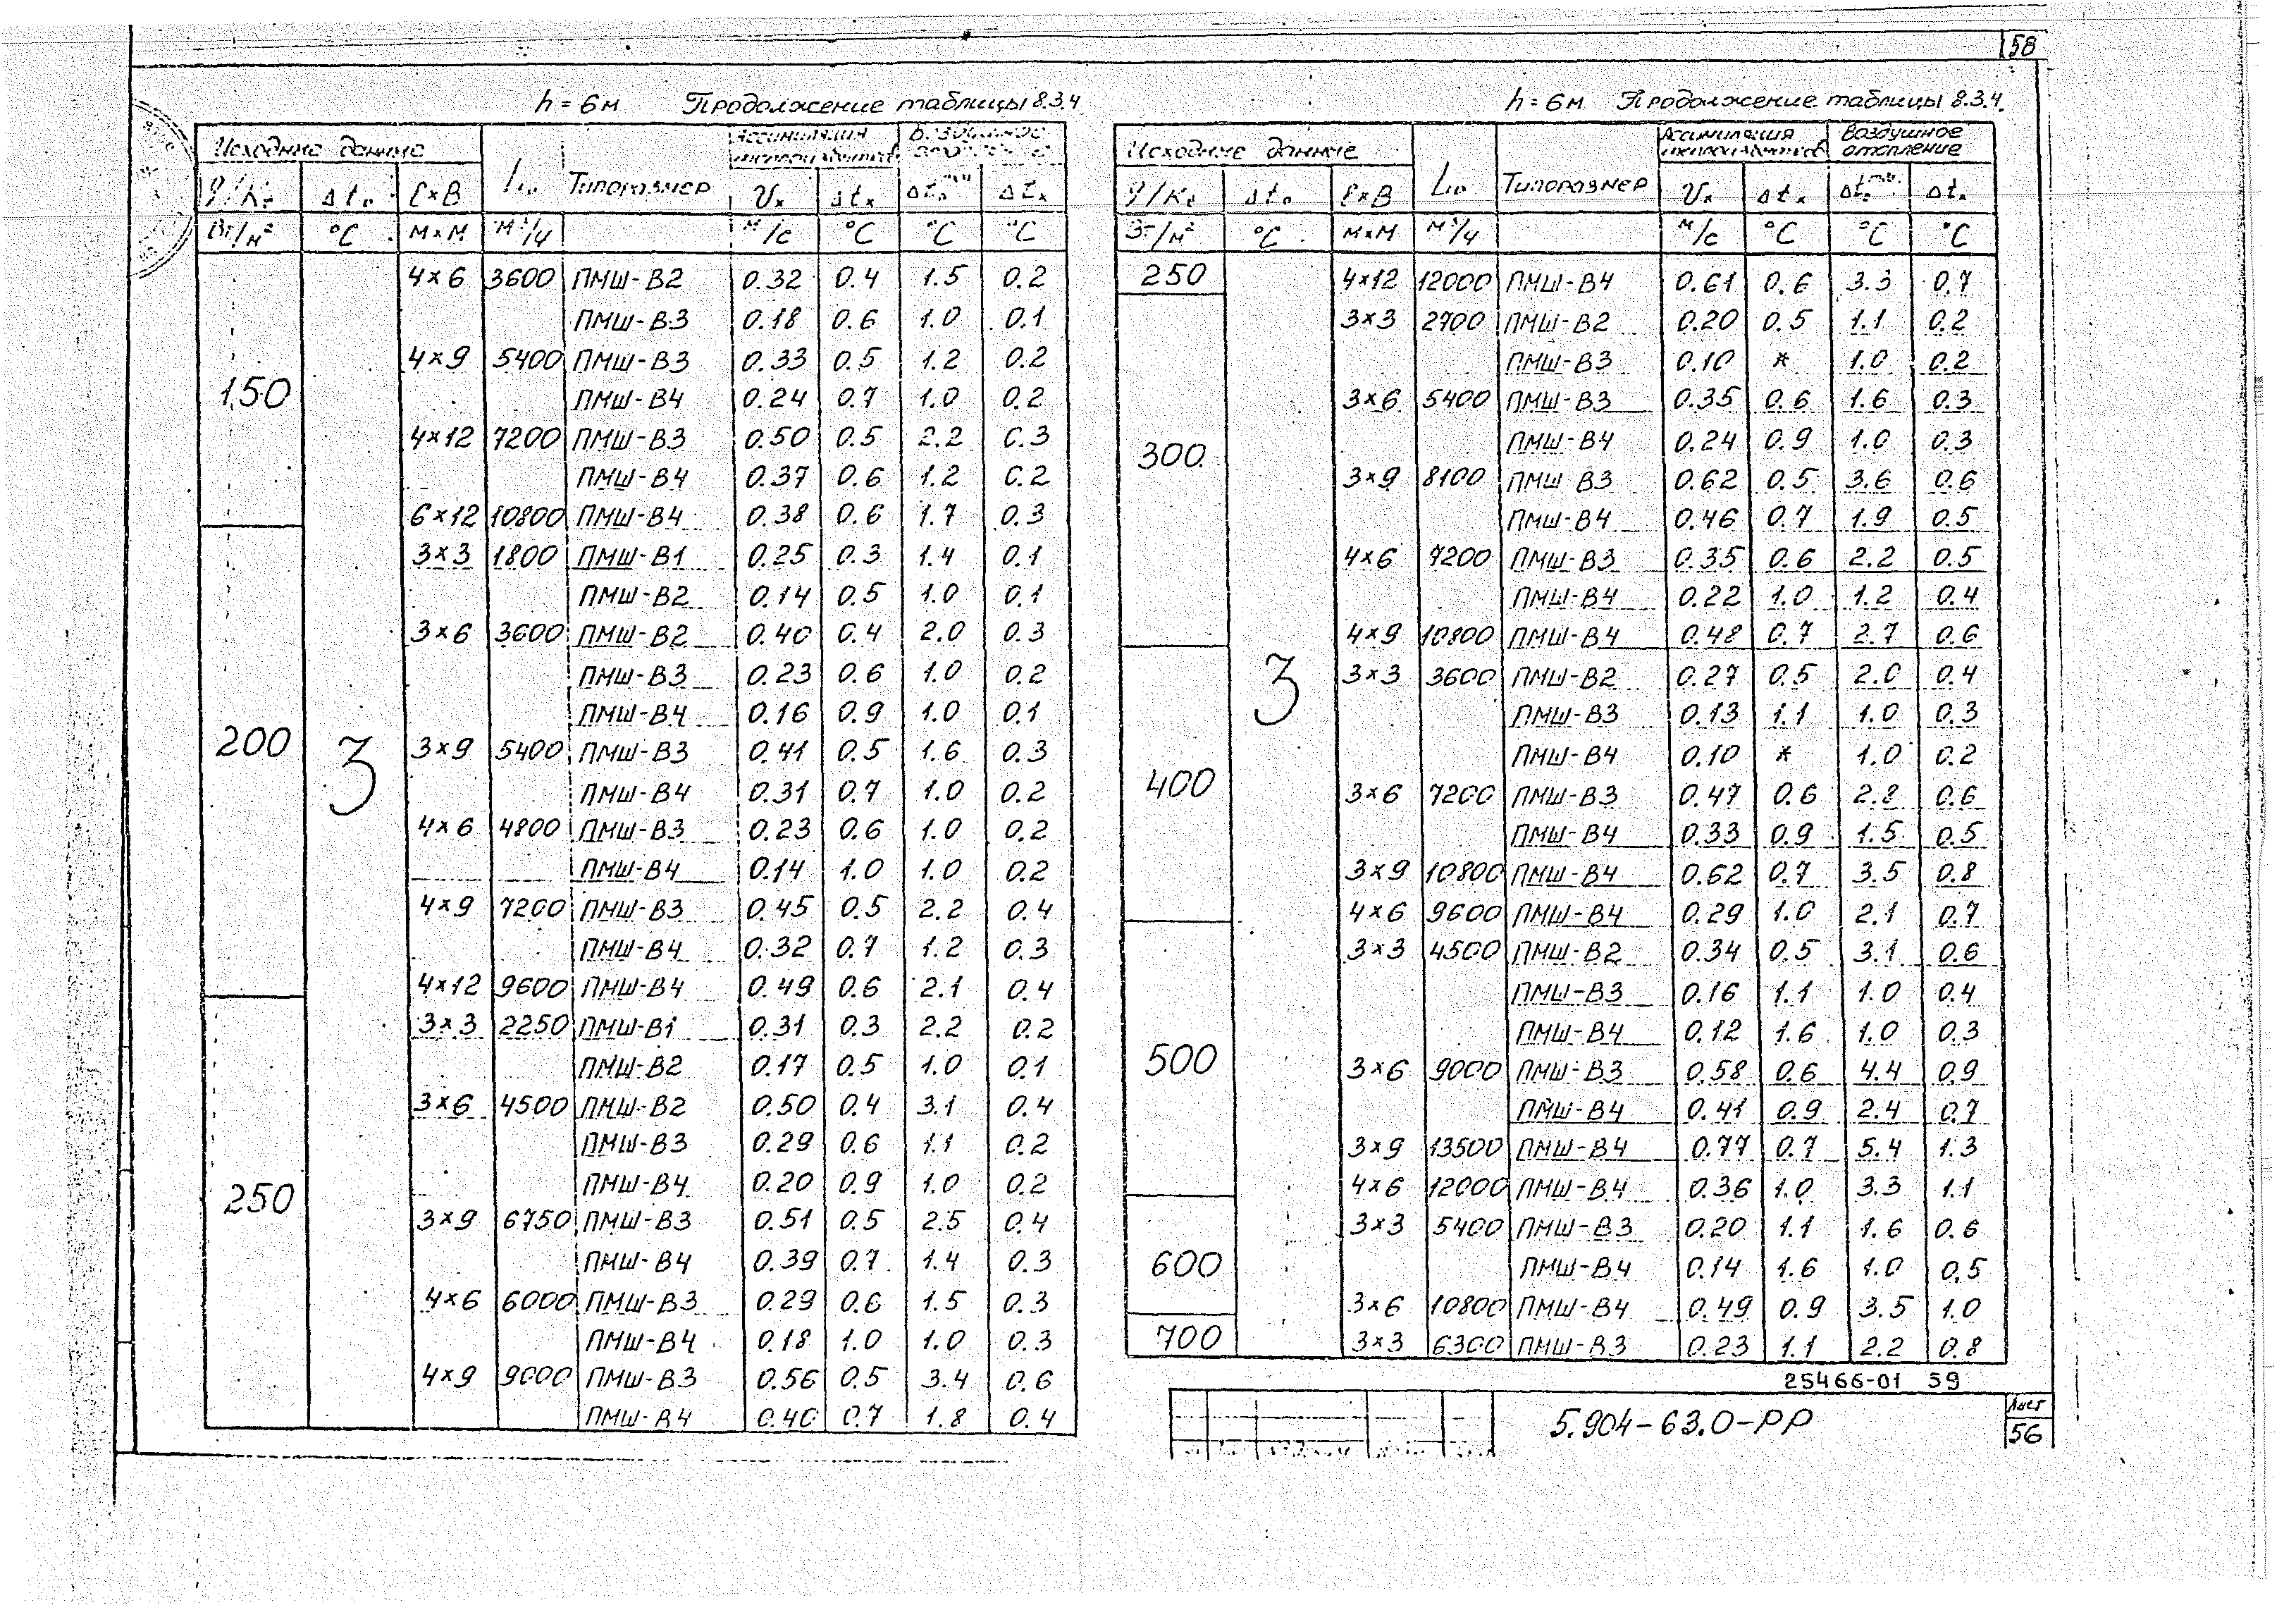 58
h = 6м Продолжение таблицы 8.3.4
Исходные данные Lо Типоразмер Ассимиляция теплоизбытков Воздушное
q/Kt Δtо ℓ×В Vx Δtx Δtо Δtx
Вт/м² °С м×м м³/ч м/с °С °С °С
4×6 3600 ПМШ-В2 0.32 0.4 1.5 0.2
ПМШ-В3 0.18 0.6 1.0 0.1
4×9 5400 ПМШ-В3 0.33 0.5 1.2 0.2
150 ПМШ-В4 0.24 0.7 1.0 0.2
4×12 7200 ПМШ-В3 0.50 0.5 2.2 0.3
ПМШ-В4 0.37 0.6 1.2 0.2
6×12 10800 ПМШ-В4 0.38 0.6 1.7 0.3
3×3 1800 ПМШ-В1 0.25 0.3 1.4 0.1
ПМШ-В2 0.14 0.5 1.0 0.1
3×6 3600 ПМШ-В2 0.40 0.4 2.0 0.3
ПМШ-В3 0.23 0.6 1.0 0.2
ПМШ-В4 0.16 0.9 1.0 0.1
200 3 3×9 5400 ПМШ-В3 0.41 0.5 1.6 0.3
ПМШ-В4 0.31 0.7 1.0 0.2
4×6 4800 ПМШ-В3 0.23 0.6 1.0 0.2
ПМШ-В4 0.14 1.0 1.0 0.2
4×9 7200 ПМШ-В3 0.45 0.5 2.2 0.4
ПМШ-В4 0.32 0.7 1.2 0.3
4×12 9600 ПМШ-В4 0.49 0.6 2.1 0.4
3×3 2250 ПМШ-В1 0.31 0.3 2.2 0.2
ПМШ-В2 0.17 0.5 1.0 0.1
3×6 4500 ПМШ-В2 0.50 0.4 3.1 0.4
ПМШ-В3 0.29 0.6 1.1 0.2
250 ПМШ-В4 0.20 0.9 1.0 0.2
3×9 6750 ПМШ-В3 0.51 0.5 2.5 0.4
ПМШ-В4 0.39 0.7 1.4 0.3
4×6 6000 ПМШ-В3 0.29 0.6 1.5 0.3
ПМШ-В4 0.18 1.0 1.0 0.3
4×9 9000 ПМШ-В3 0.56 0.5 3.4 0.6
ПМШ-В4 0.40 0.7 1.8 0.4
h = 6м Продолжение таблицы 8.3.4.
Исходные данные Lо Типоразмер Ассимиляция теплоизбытков Воздушное отопление
q/Kt Δtо ℓ×В Vx Δtx Δtо Δtx
Вт/м² °С м×м м³/ч м/с °С °С °С
250 4×12 12000 ПМШ-В4 0.61 0.6 3.3 0.7
3×3 2700 ПМШ-В2 0.20 0.5 1.1 0.2
ПМШ-В3 0.10 * 1.0 0.2
3×6 5400 ПМШ-В3 0.35 0.6 1.6 0.3
300 ПМШ-В4 0.24 0.9 1.0 0.3
3×9 8100 ПМШ В3 0.62 0.5 3.6 0.6
ПМШ-В4 0.46 0.7 1.9 0.5
4×6 7200 ПМШ-В3 0.35 0.6 2.2 0.5
ПМШ-В4 0.22 1.0 1.2 0.4
4×9 10800 ПМШ-В4 0.48 0.7 2.7 0.6
3 3×3 3600 ПМШ-В2 0.27 0.5 2.0 0.4
ПМШ-В3 0.13 1.1 1.0 0.3
ПМШ-В4 0.10 * 1.0 0.2
400 3×6 7200 ПМШ-В3 0.47 0.6 2.8 0.6
ПМШ-В4 0.33 0.9 1.5 0.5
3×9 10800 ПМШ-В4 0.62 0.7 3.5 0.8
4×6 9600 ПМШ-В4 0.29 1.0 2.1 0.7
3×3 4500 ПМШ-В2 0.34 0.5 3.1 0.6
ПМШ-В3 0.16 1.1 1.0 0.4
ПМШ-В4 0.12 1.6 1.0 0.3
500 3×6 9000 ПМШ-В3 0.58 0.6 4.4 0.9
ПМШ-В4 0.41 0.9 2.4 0.7
3×9 13500 ПМШ-В4 0.77 0.7 5.4 1.3
4×6 12000 ПМШ-В4 0.36 1.0 3.3 1.1
3×3 5400 ПМШ-В3 0.20 1.1 1.6 0.6
600 ПМШ-В4 0.14 1.6 1.0 0.5
3×6 10800 ПМШ-В4 0.49 0.9 3.5 1.0
700 3×3 6300 ПМШ-В3 0.23 1.1 2.2 0.8
25466-01 59
5.904-63.0-РР
Лист
56